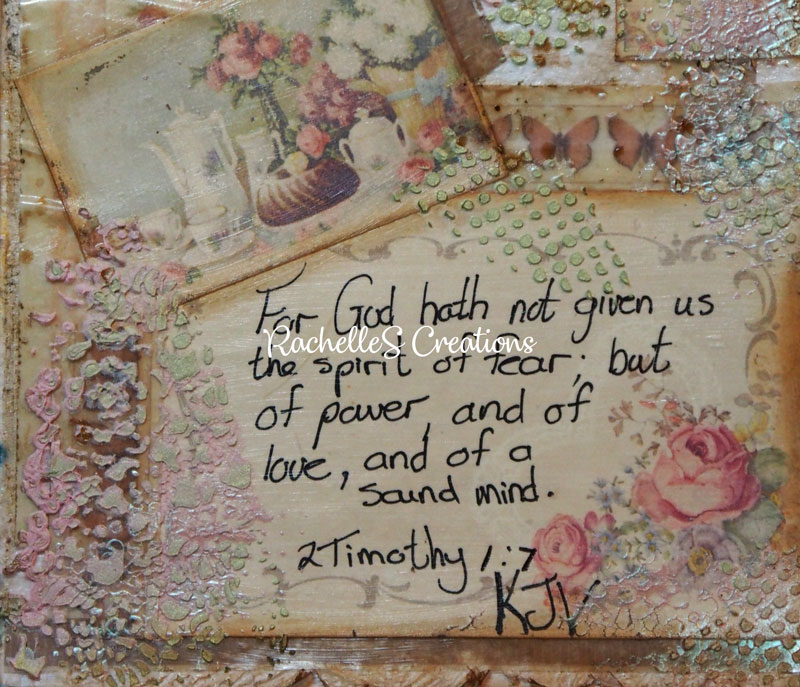 For God hath not given us
RachelleS Creations
the spirit of fear; but
of power, and of
love, and of a
sound mind.
2 Timothy 1:7
KJV